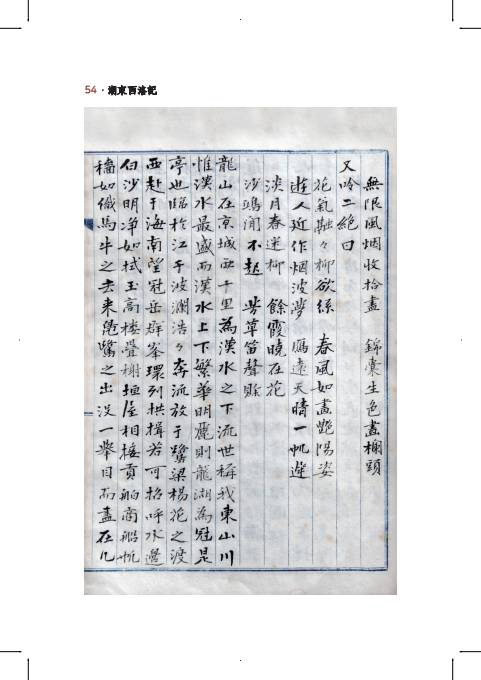 54 · 湖東西洛記
無限風烟收拾盡 錦囊生色畫欄頭
又吟二絶曰
花氣融々柳欲絲 春風如畫艶陽姿
遊人近作烟波夢 鴈遠天晴一帆遲
淡月春迷柳 餘霞曉在花
沙鷗閒不起 芳草笛聲賖
龍山在京城西十里為漢水之下流世稱我東山川
惟漢水最盛而漢水上下繁華明麗則龍湖為冠是
亭也臨於江干波瀾浩々奔流放于鷺梁楊花之渡
西赴于海南望冠岳群峯環列拱揖若可招呼水邊
白沙明净如拭玉高樓疊榭垣屋相接貢舶商船帆
檣如織馬牛之去來鳧鷺之出没一擧目而盡在几